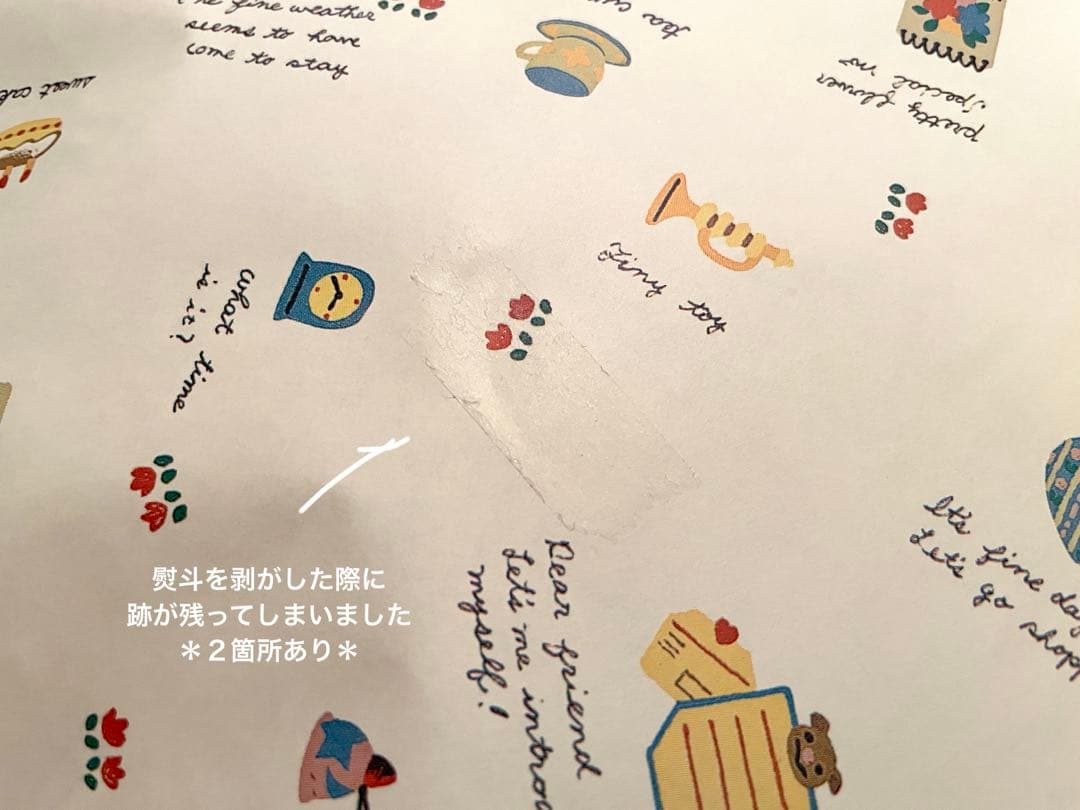 The fine weather
seems to have
come to stay
Tea cup
sweet cake
pretty flower
Special
Tiny toy
What time
is it?
It's fine day
Let's go shopp
熨斗を剥がした際に
跡が残ってしまいました
＊２箇所あり＊
Dear friend
Let's me introd
myself!